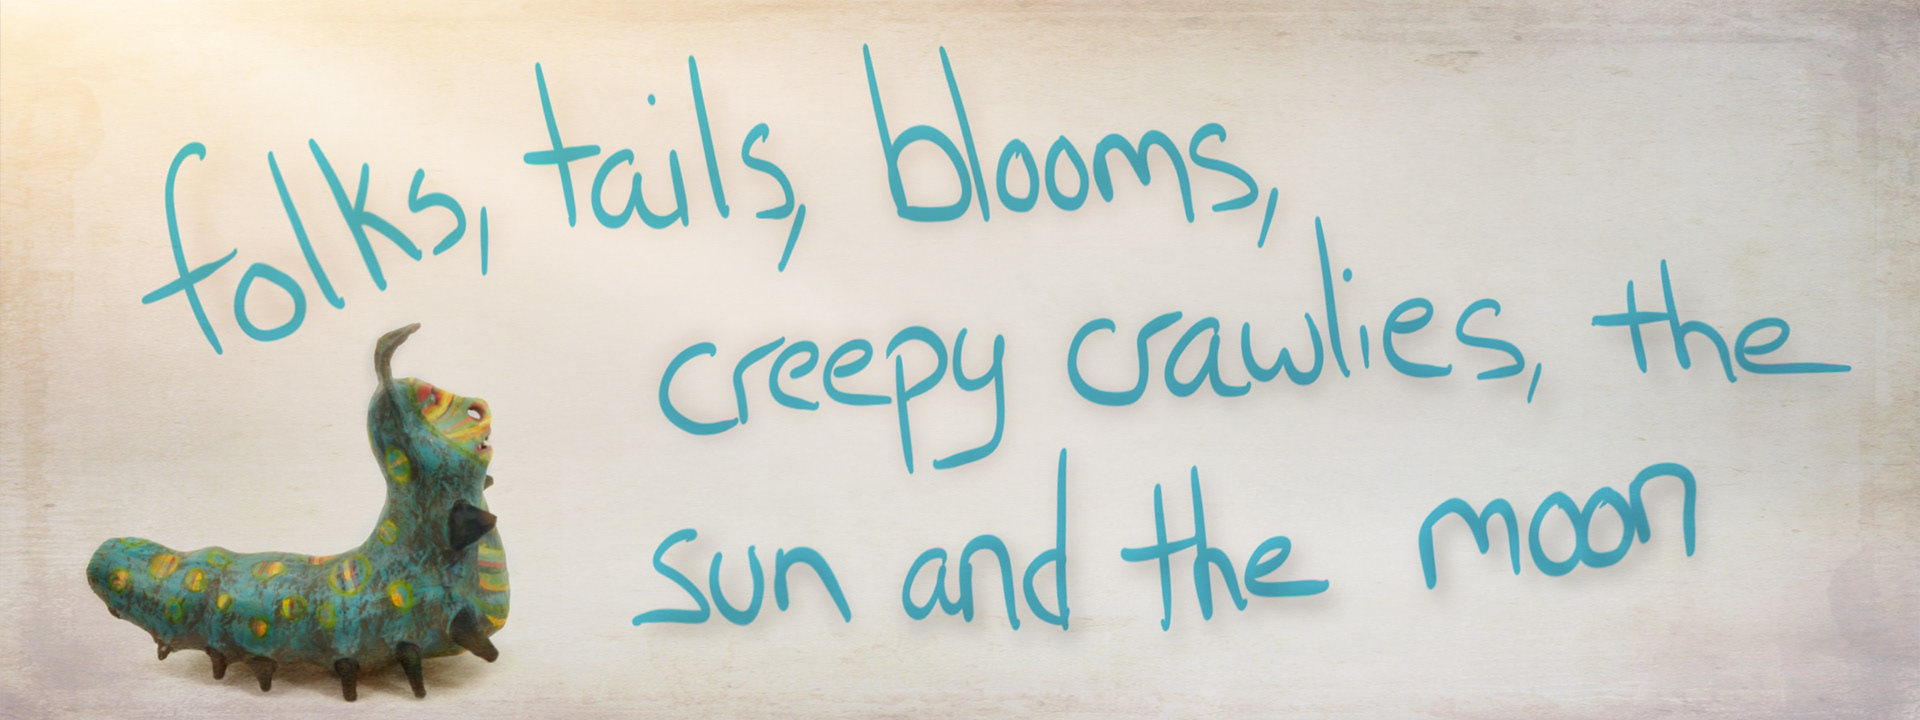 folks, tails, blooms,
creepy crawlies, the
sun and the moon